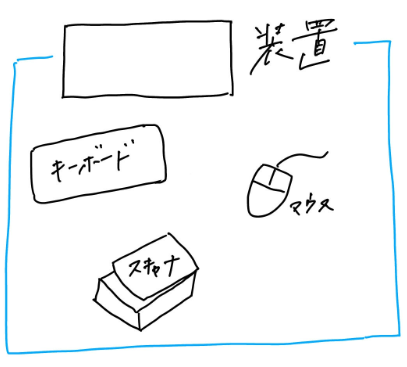 装置
キーボード
マウス
スキャナ